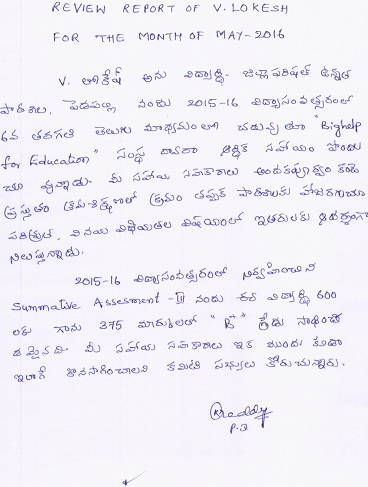 REVIEW REPORT OF V. LOKESH
FOR THE MONTH OF MAY-2016
V. లోకేష్ అను విద్యార్థి జిల్లా పరిషత్ ఉన్నత
పాఠశాల, పెదపల్లి నందు 2015-16 విద్యాసంవత్సరంలో
6వ తరగతి తెలుగు మాధ్యమంలో చదువుతూ "Bighelp
for Education" సంస్థ ద్వారా ఆర్థిక సహాయం పొందు
చూ వున్నాడు. మీ సహాయ సహకారాలు
ప్రస్తుతం క్రమశిక్షణలో క్రమం తప్పక పాఠశాలకు హాజరగుచూ
వినయ విధేయతల విషయంలో ఇతరులకు ఆదర్శంగా
నిలుస్తున్నాడు.
2015-16 విద్యాసంవత్సరంలో నిర్వహించిన
Summative Assesment - III నందు ఈ విద్యార్థి 600
లకు గాను 375 మార్కులలో "B+" గ్రేడు సాధించ
డమైనది. మీ సహాయ సహకారాలు ఇక ముందు కూడా
ఇలాగే కొనసాగించాలని కమిటి సభ్యులు కోరుచున్నారు.